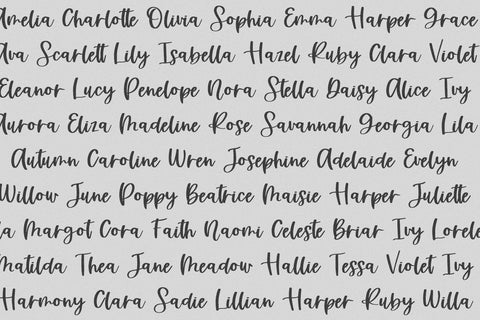 Amelia Charlotte Olivia Sophia Emma Harper Grace
Ava Scarlett Lily Isabella Hazel Ruby Clara Violet
Eleanor Lucy Penelope Nora Stella Daisy Alice Ivy
Aurora Eliza Madeline Rose Savannah Georgia Lila
Autumn Caroline Wren Josephine Adelaide Evelyn
Willow June Poppy Beatrice Maisie Harper Juliette
la Margot Cora Faith Naomi Celeste Briar Ivy Lorele
Matilda Thea Jane Meadow Hallie Tessa Violet Ivy
Harmony Clara Sadie Lillian Harper Ruby Willa